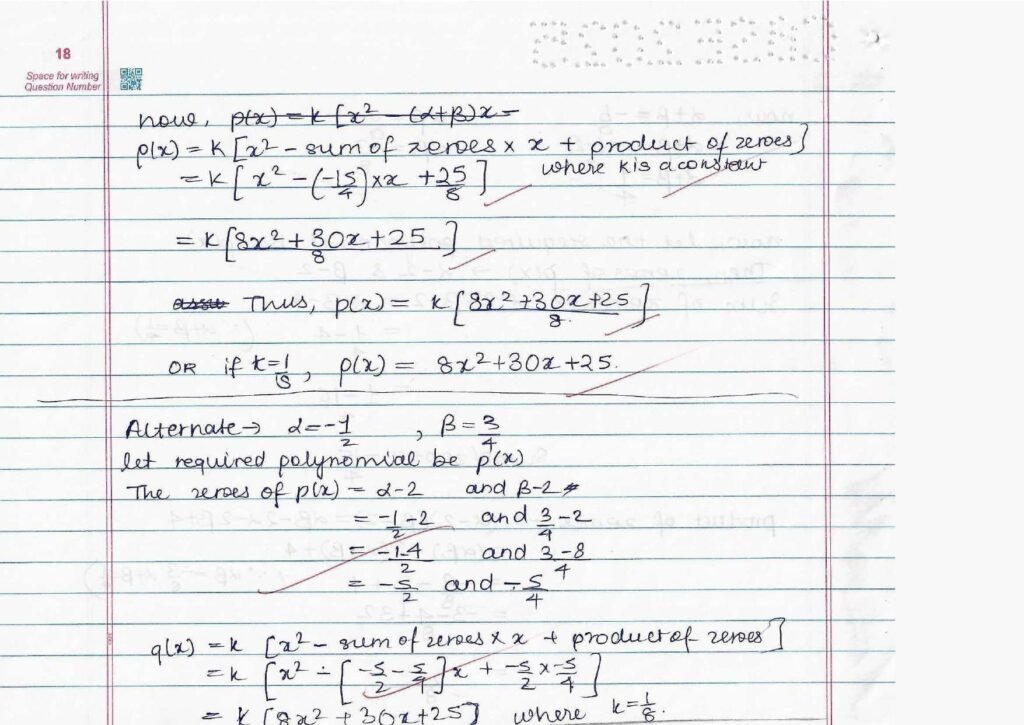 18
Space for writing
Question Number
now, p(x) = k [x² - (α+β)x -
p(x) = K [x² - sum of zeroes × x + product of zeroes]
where k is a constant
= K [x² - (-15/4) × x + 25/8]
= K [8x² + 30x + 25 / 8]
Thus, p(x) = k [8x² + 30x + 25 / 8.]
OR if k = 1/8, p(x) = 8x² + 30x + 25.
Alternate → α = -1/2 , β = 3/4
let required polynomial be p(x)
The zeroes of p(x) = α-2 and β-2
= -1/2 - 2 and 3/4 - 2
= -1-4/2 and 3-8/4
= -5/2 and -5/4
q(x) = k [x² - sum of zeroes × x + product of zeroes]
= k [x² - [-5/2 - 5/4]x + -5/2 × -5/4]
= k [8x² + 30x + 25] where k = 1/8.